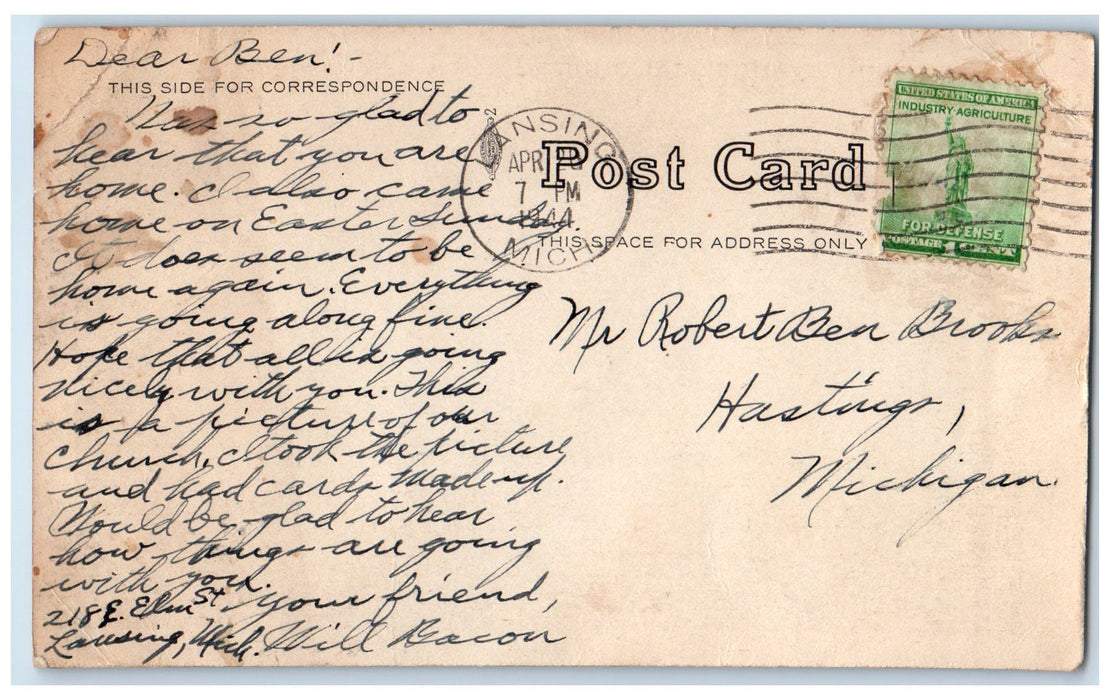 Dear Ben! -
THIS SIDE FOR CORRESPONDENCE
Was so glad to
hear that you are
home. I also came
home on Easter Sunday.
It does seem to be
home again. Everything
is going along fine.
Hope that all is going
nicely with you. This
is a picture of our
church. I took the picture
and had cards made up.
Would be glad to hear
how things are going
with you.
Your friend,
Will Bacon
218 E. Elm St
Lansing, Mich.
LANSING
2
APR
7 PM
1944
MICH
Post Card
THIS SPACE FOR ADDRESS ONLY
UNITED STATES OF AMERICA
INDUSTRY·AGRICULTURE
FOR DEFENSE
POSTAGE 1 CENT
Mr Robert Ben Brooks
Hastings,
Michigan.